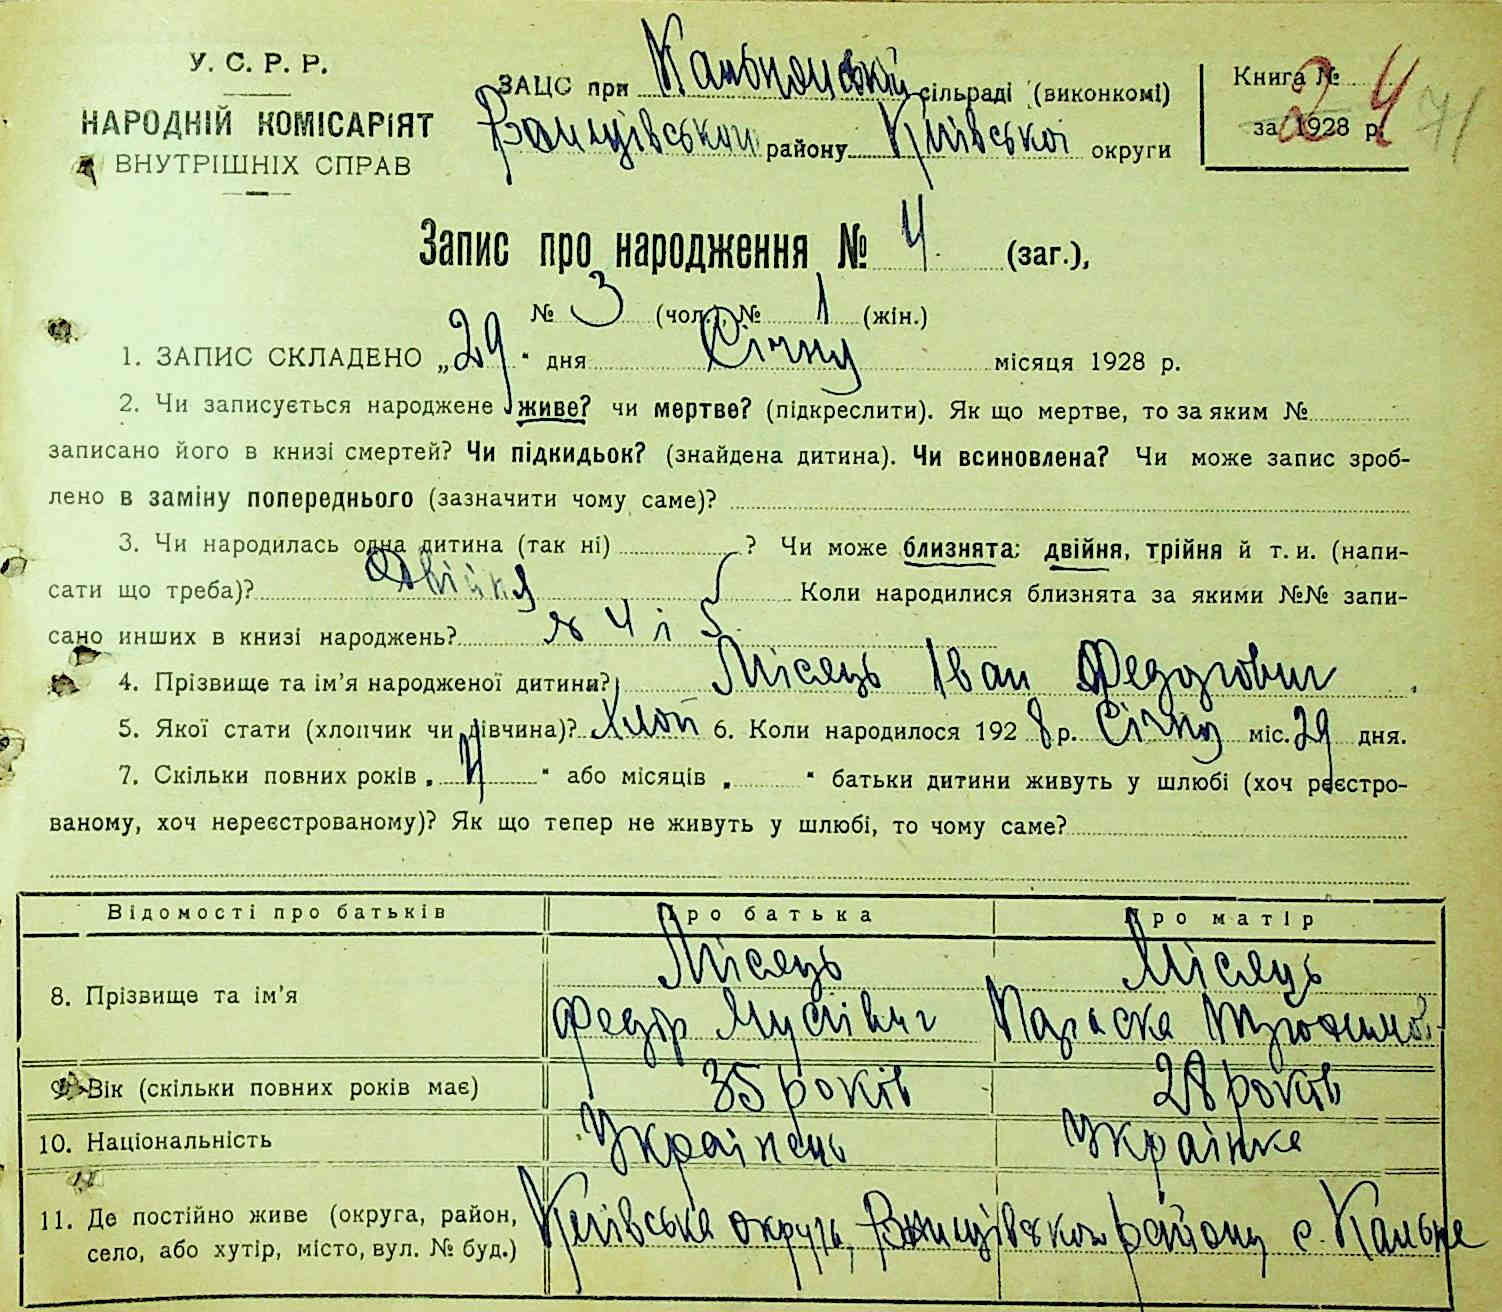 У. С. Р. Р.
НАРОДНІЙ КОМІСАРІЯТ
ВНУТРІШНІХ СПРАВ
ЗАЦС при Кальнянській сільраді (виконкомі)
району Київської округи
Книга № 4
за 1928 р. 71
Запис про народження № 4 (заг.),
№ 3 (чол.), № 1 (жін.)
1. ЗАПИС СКЛАДЕНО „29" дня Січну місяця 1928 р.
2. Чи записується народжене живе? чи мертве? (підкреслити). Як що мертве, то за яким №
записано його в книзі смертей? Чи підкидьок? (знайдена дитина). Чи всиновлена? Чи може запис зроб-
лено в заміну попереднього (зазначити чому саме)?
3. Чи народилась одна дитина (так ні) ? Чи може близнята; двійня, трійня й т. и. (напи-
сати що треба)? Двійня Коли народилися близнята за якими №№ запи-
сано инших в книзі народжень? № 4 і 5
4. Прізвище та ім'я народженої дитини? Місяць Іван Федорович
5. Якої стати (хлопчик чи дівчина)? Хлоп 6. Коли народилося 1928 р. Січну міс. 29 дня.
7. Скільки повних років „ 4 " або місяців „ " батьки дитини живуть у шлюбі (хоч реєстро-
ваному, хоч нереєстрованому)? Як що тепер не живуть у шлюбі, то чому саме?
Відомості про батьків Про батька Про матір
8. Прізвище та ім'я Місяць Місяць
Федір Мусіївич Параска
9. Вік (скільки повних років має) 35 років 28 років
10. Національність Українець Українка
11. Де постійно живе (округа, район, Київська округа, району с. Кальне
село, або хутір, місто, вул. № буд.)